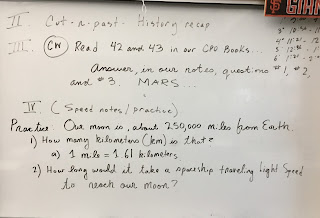 II. Cut-n-past- History recap
GIANTS
III. CW Read 42 and 43 in our CPO Books...
Answer, in our notes, questions #1, #2,
and #3. MARS...
IV. (Speed notes / practice)
Practice Our moon is, about 250,000 miles from Earth.
1) How many kilometers (km) is that?
a) 1 mile = 1.61 kilometers
2) How long would it take a spaceship traveling Light Speed
to reach our moon?